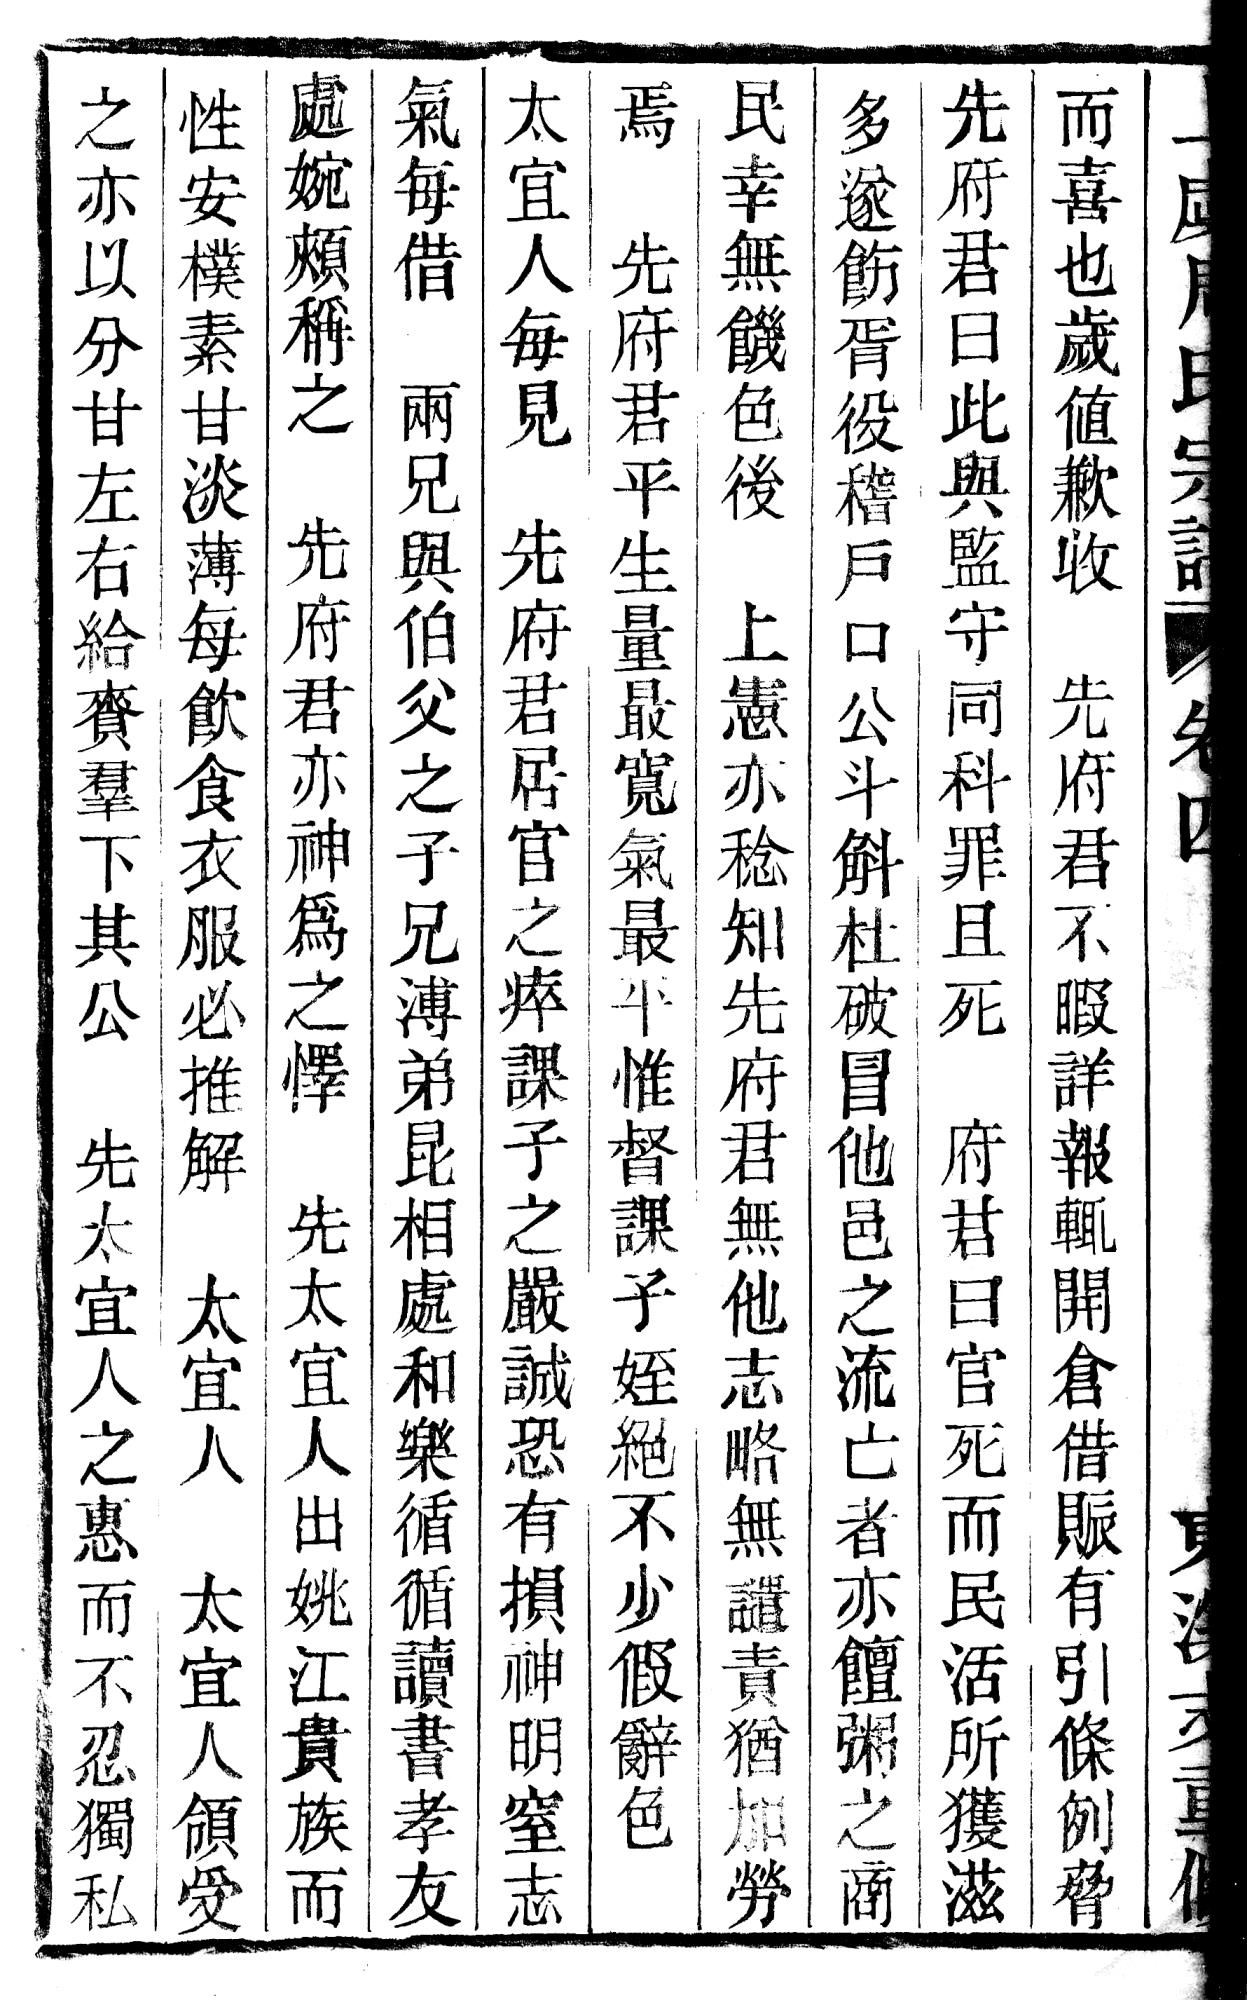 氏宗譜 卷四
而喜也歲値歉收 先府君不暇詳報輒開倉借賑有引條例脅
先府君曰此與監守同科罪且死 府君曰官死而民活所獲滋
多遂飭胥役稽戶口公斗斛杜破冒他邑之流亡者亦饘粥之商
民幸無饑色後 上憲亦稔知先府君無他志略無譴責猶加勞
焉 先府君平生量最寬氣最平惟督課子姪絕不少假辭色
太宜人每見 先府君居官之瘁課子之嚴誠恐有損神明窒志
氣每借 兩兄與伯父之子兄溥弟昆相處和樂循循讀書孝友
處婉頰稱之 先府君亦神爲之懌 先太宜人出姚江貴族而
性安樸素甘淡薄每飲食衣服必推解 太宜人 太宜人領受
之亦以分甘左右給賚羣下其公 先太宜人之惠而不忍獨私